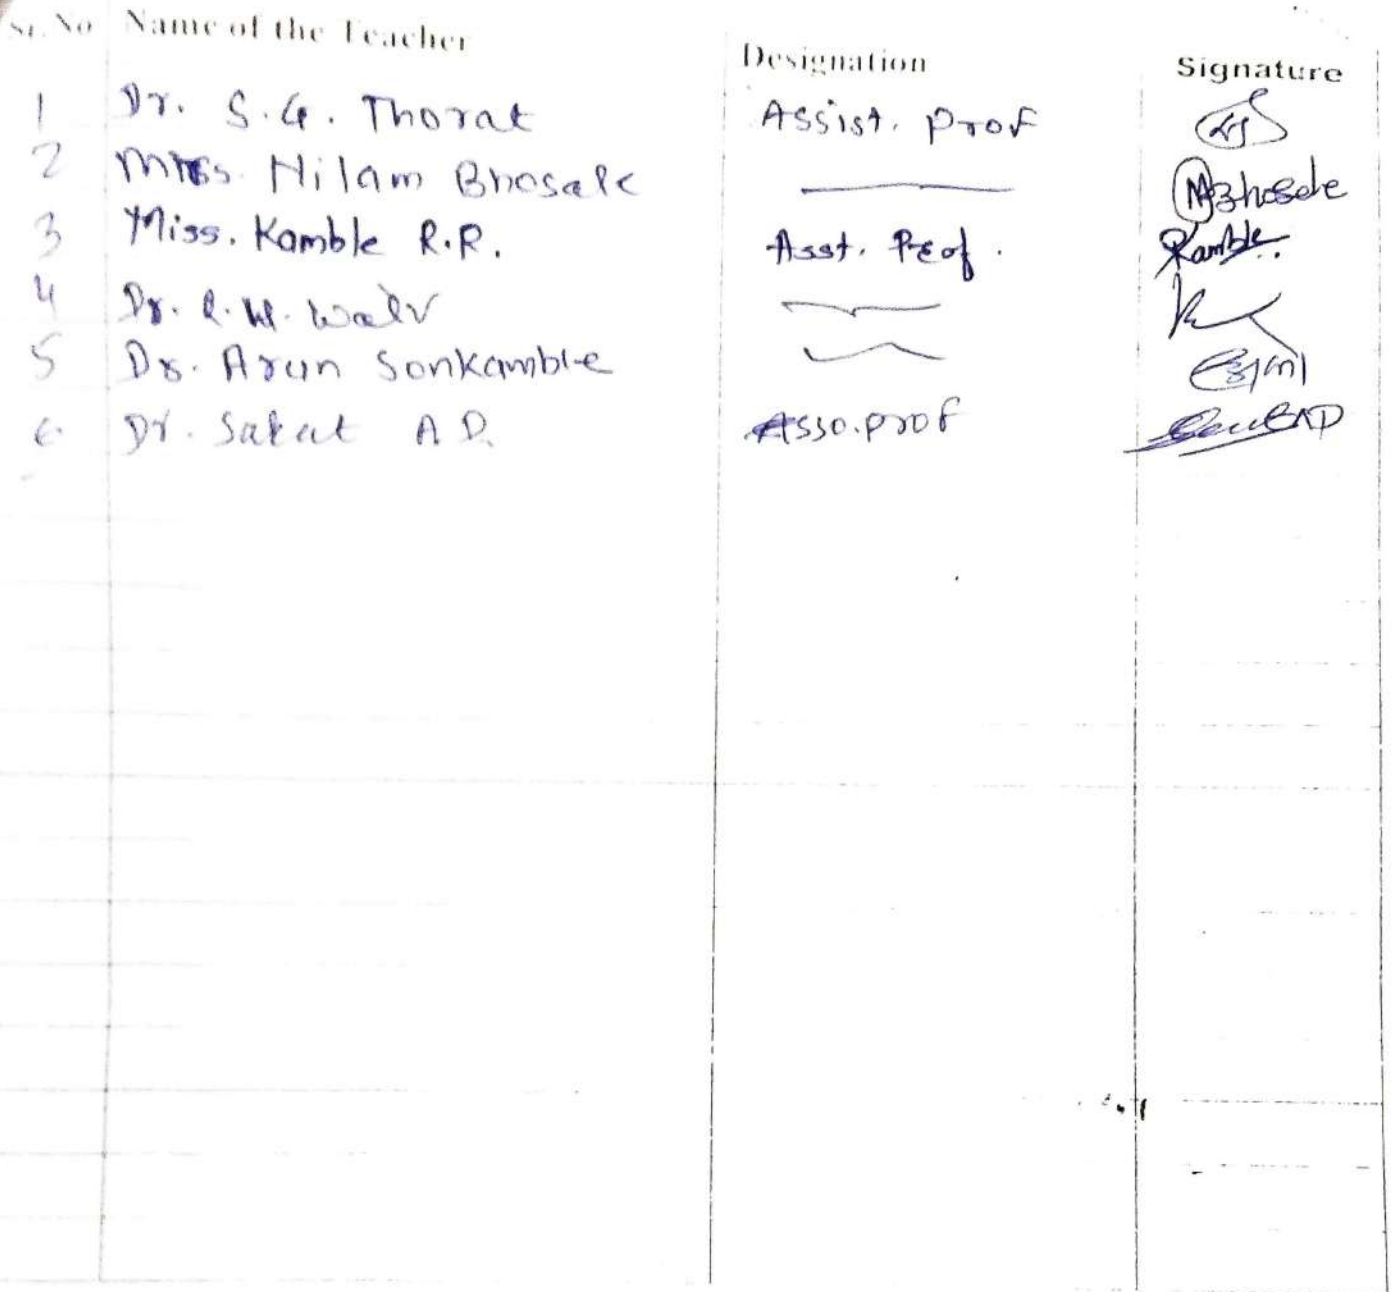 Sr. No Name of the Teacher Designation Signature
1 Dr. S.G. Thorat Assist. Prof
2 Miss. Nilam Bhosale ——— NBhosale
3 Miss. Kamble R.R. Asst. Prof. Kamble
4 Dr.
5 Dr. Arun Sonkamble
6 Dr. Sakat A D. Asso. prof